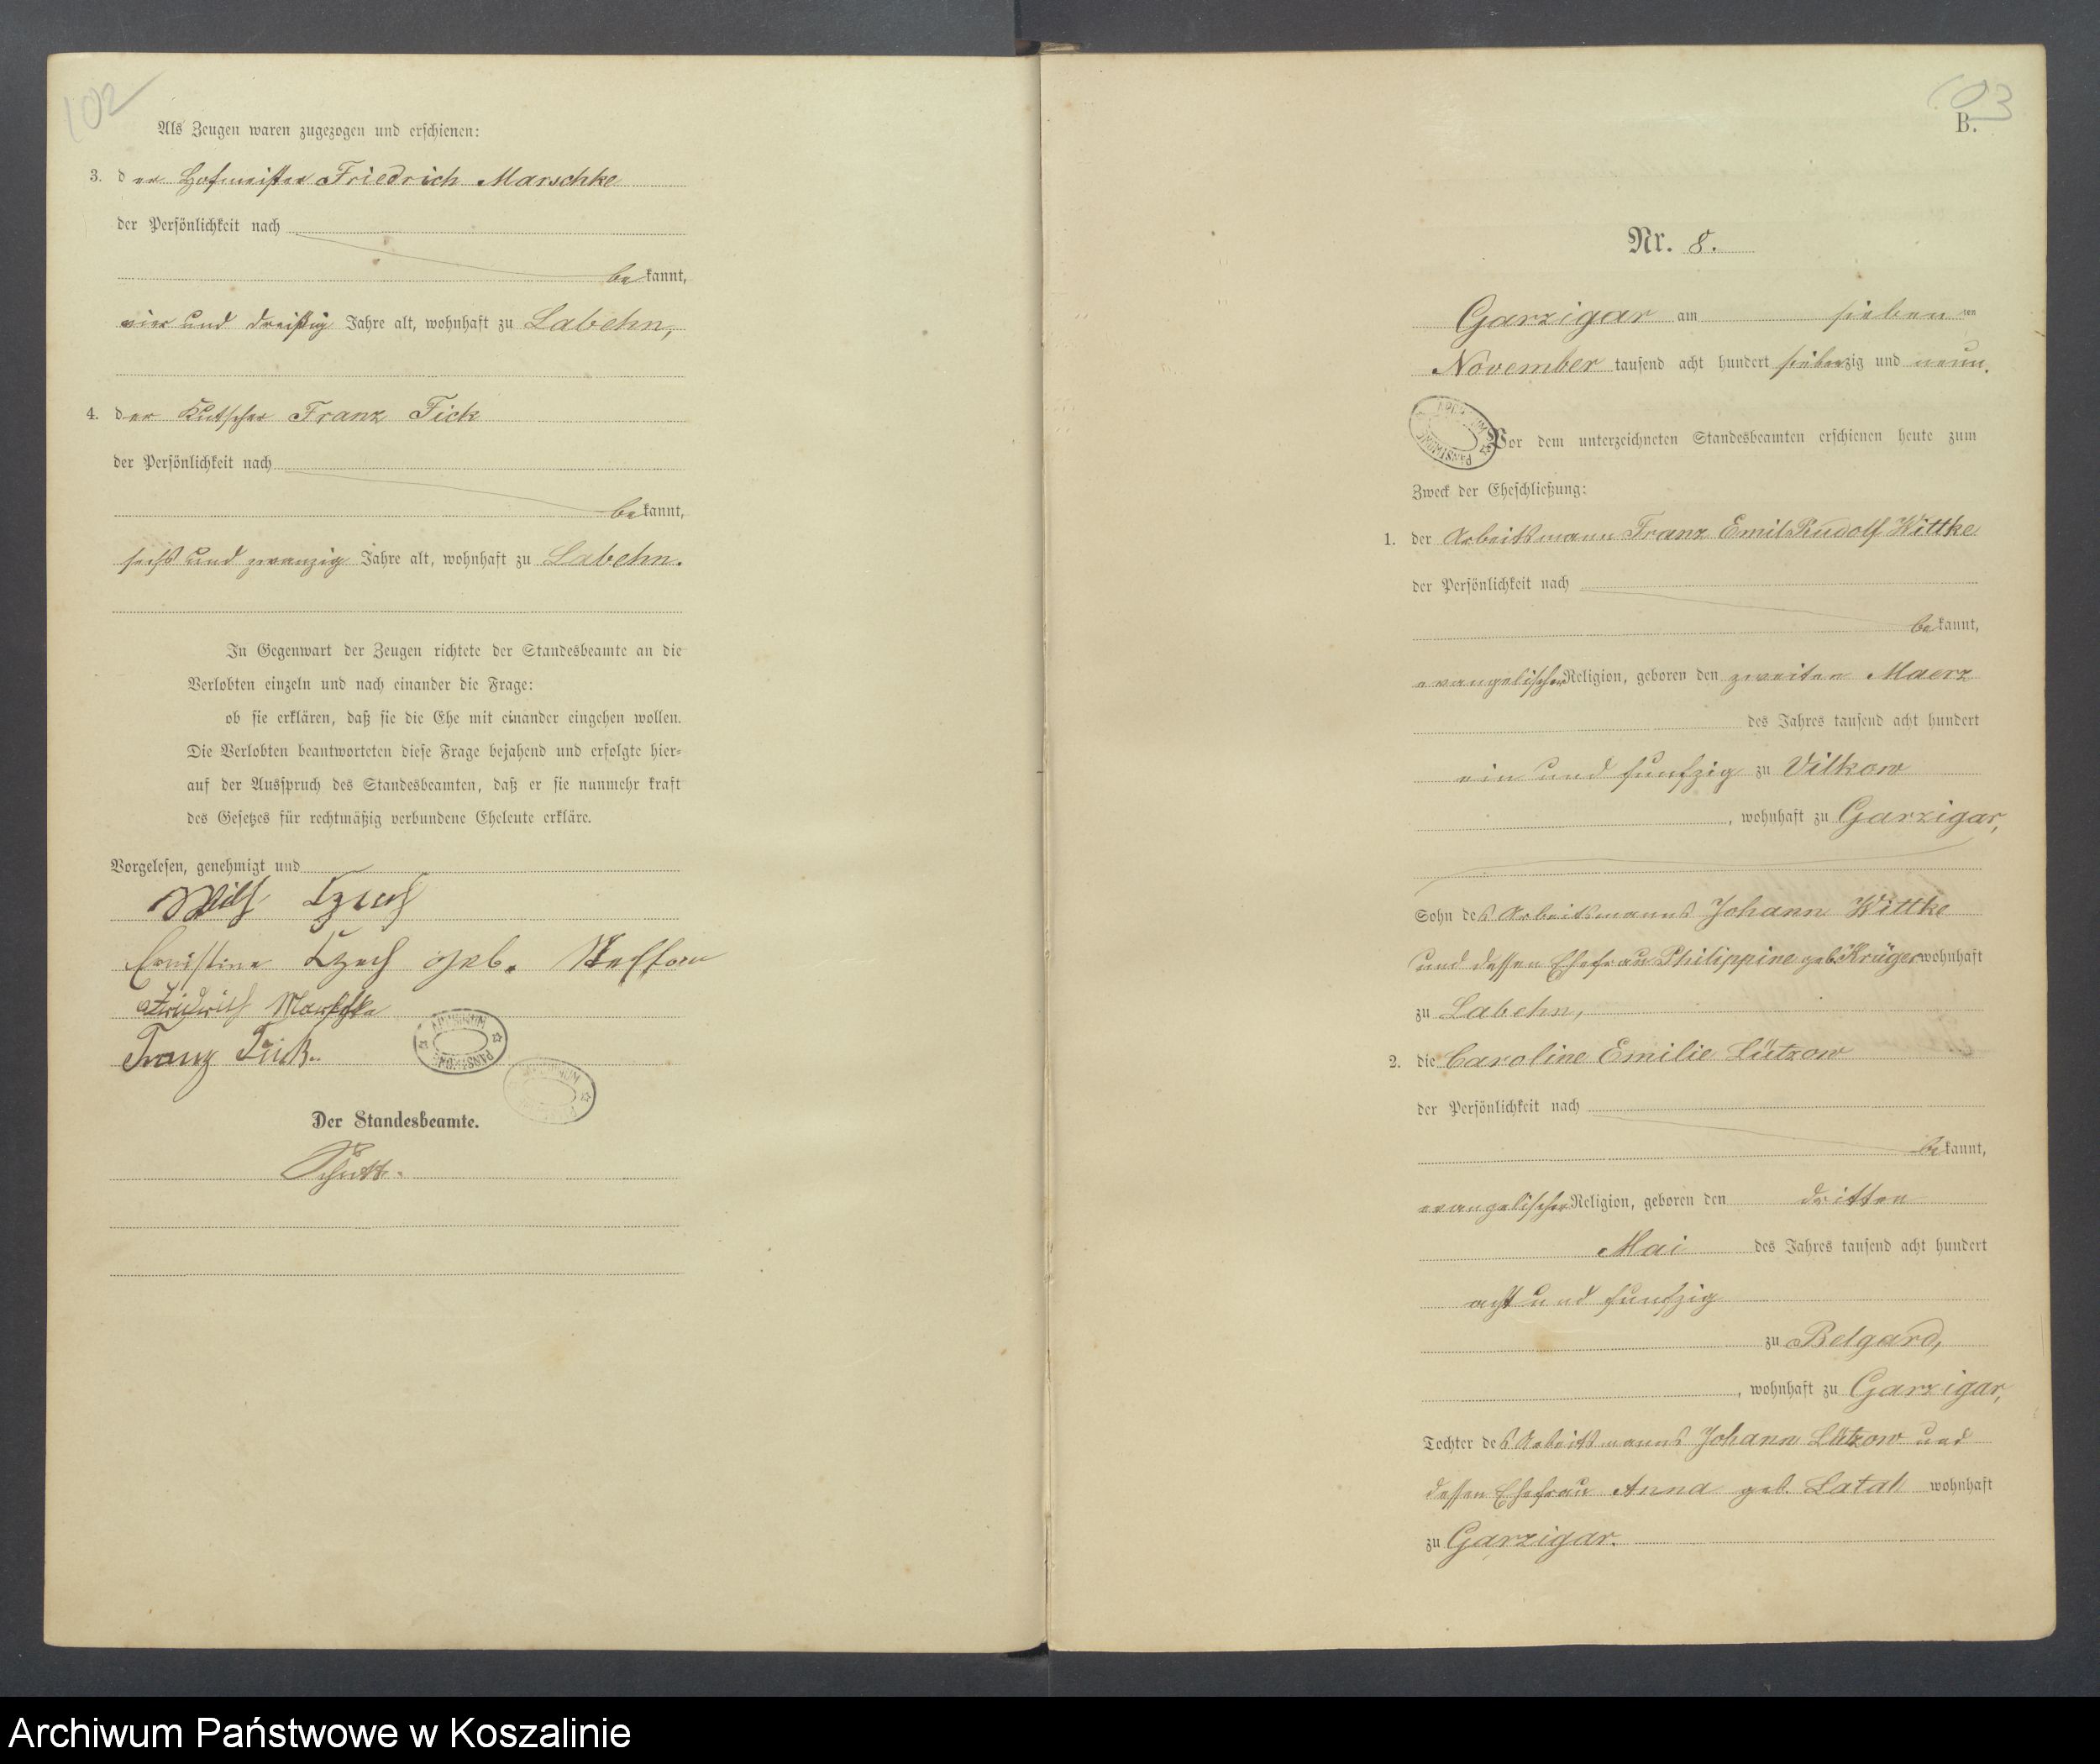 102
Als Zeugen waren zugezogen und erschienen:
3. der Hofmeister Friedrich Marschke
der Persönlichkeit nach
bekannt,
vier und dreißig Jahre alt, wohnhaft zu Labehn,
4. der Kutscher Franz Fick
der Persönlichkeit nach
bekannt,
sechs und zwanzig Jahre alt, wohnhaft zu Labehn.
In Gegenwart der Zeugen richtete der Standesbeamte an die
Verlobten einzeln und nach einander die Frage:
ob sie erklären, daß sie die Ehe mit einander eingehen wollen.
Die Verlobten beantworteten diese Frage bejahend und erfolgte hier-
auf der Ausspruch des Standesbeamten, daß er sie nunmehr kraft
des Gesetzes für rechtmäßig verbundene Eheleute erkläre.
Vorgelesen, genehmigt und
Wilh Czech
Ernistine Czech geb.
Friedrich Marschke
Franz Fick.
Der Standesbeamte.
103
B.
Nr. 8.
Garzigar am sieben ten
November tausend acht hundert siebenzig und neun.
Vor dem unterzeichneten Standesbeamten erschienen heute zum
Zweck der Eheschließung:
1. der Arbeitsmann Franz Emil Rudolf Wittke
der Persönlichkeit nach
bekannt,
evangelischer Religion, geboren den zweiten Maerz
des Jahres tausend acht hundert
ein und funfzig zu Vilkow
, wohnhaft zu Garzigar,
Sohn des Arbeitsmanns Johann Wittke
und dessen Ehefrau Philippine geb. Krüger wohnhaft
zu Labehn,
2. die Caroline Emilie Lützow
der Persönlichkeit nach
bekannt,
evangelischer Religion, geboren den dritten
Mai des Jahres tausend acht hundert
acht und funfzig
zu Belgard,
, wohnhaft zu Garzigar,
Tochter des Arbeitsmanns Johann Lützow und
dessen Ehefrau Anna geb. Latal wohnhaft
zu Garzigar.
Archiwum Państwowe w Koszalinie